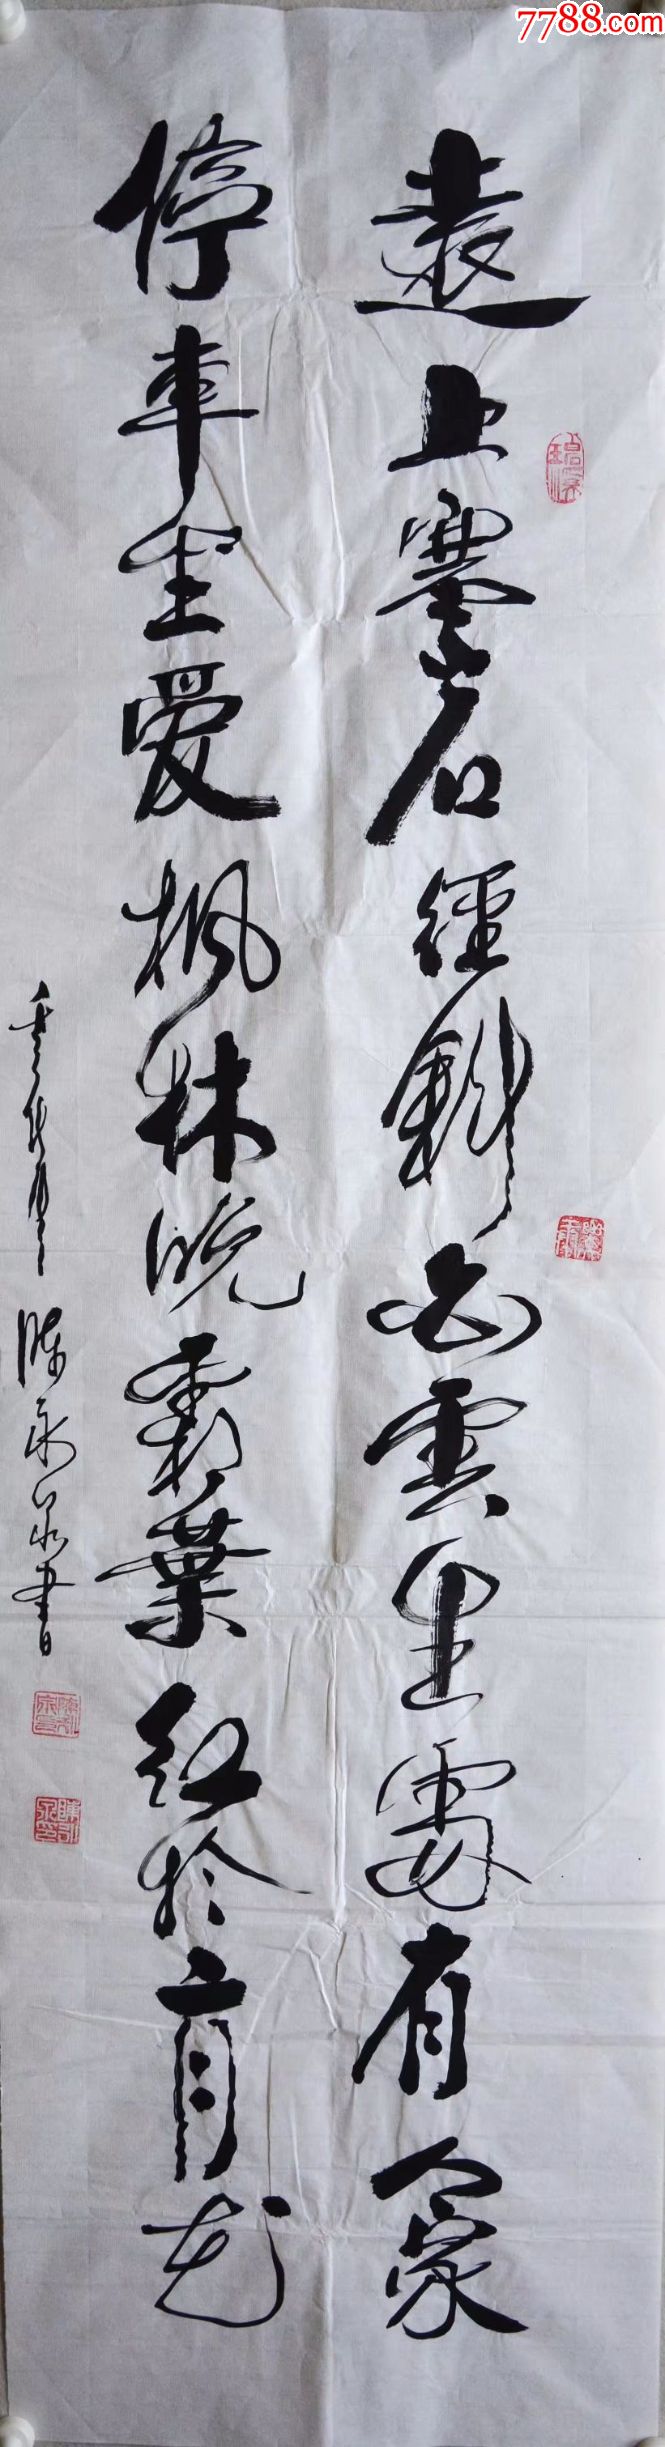 7788.com
遠上寒山石徑斜白雲生處有人家
停車坐爱枫林晚霜葉红於二月花
陈永泉書